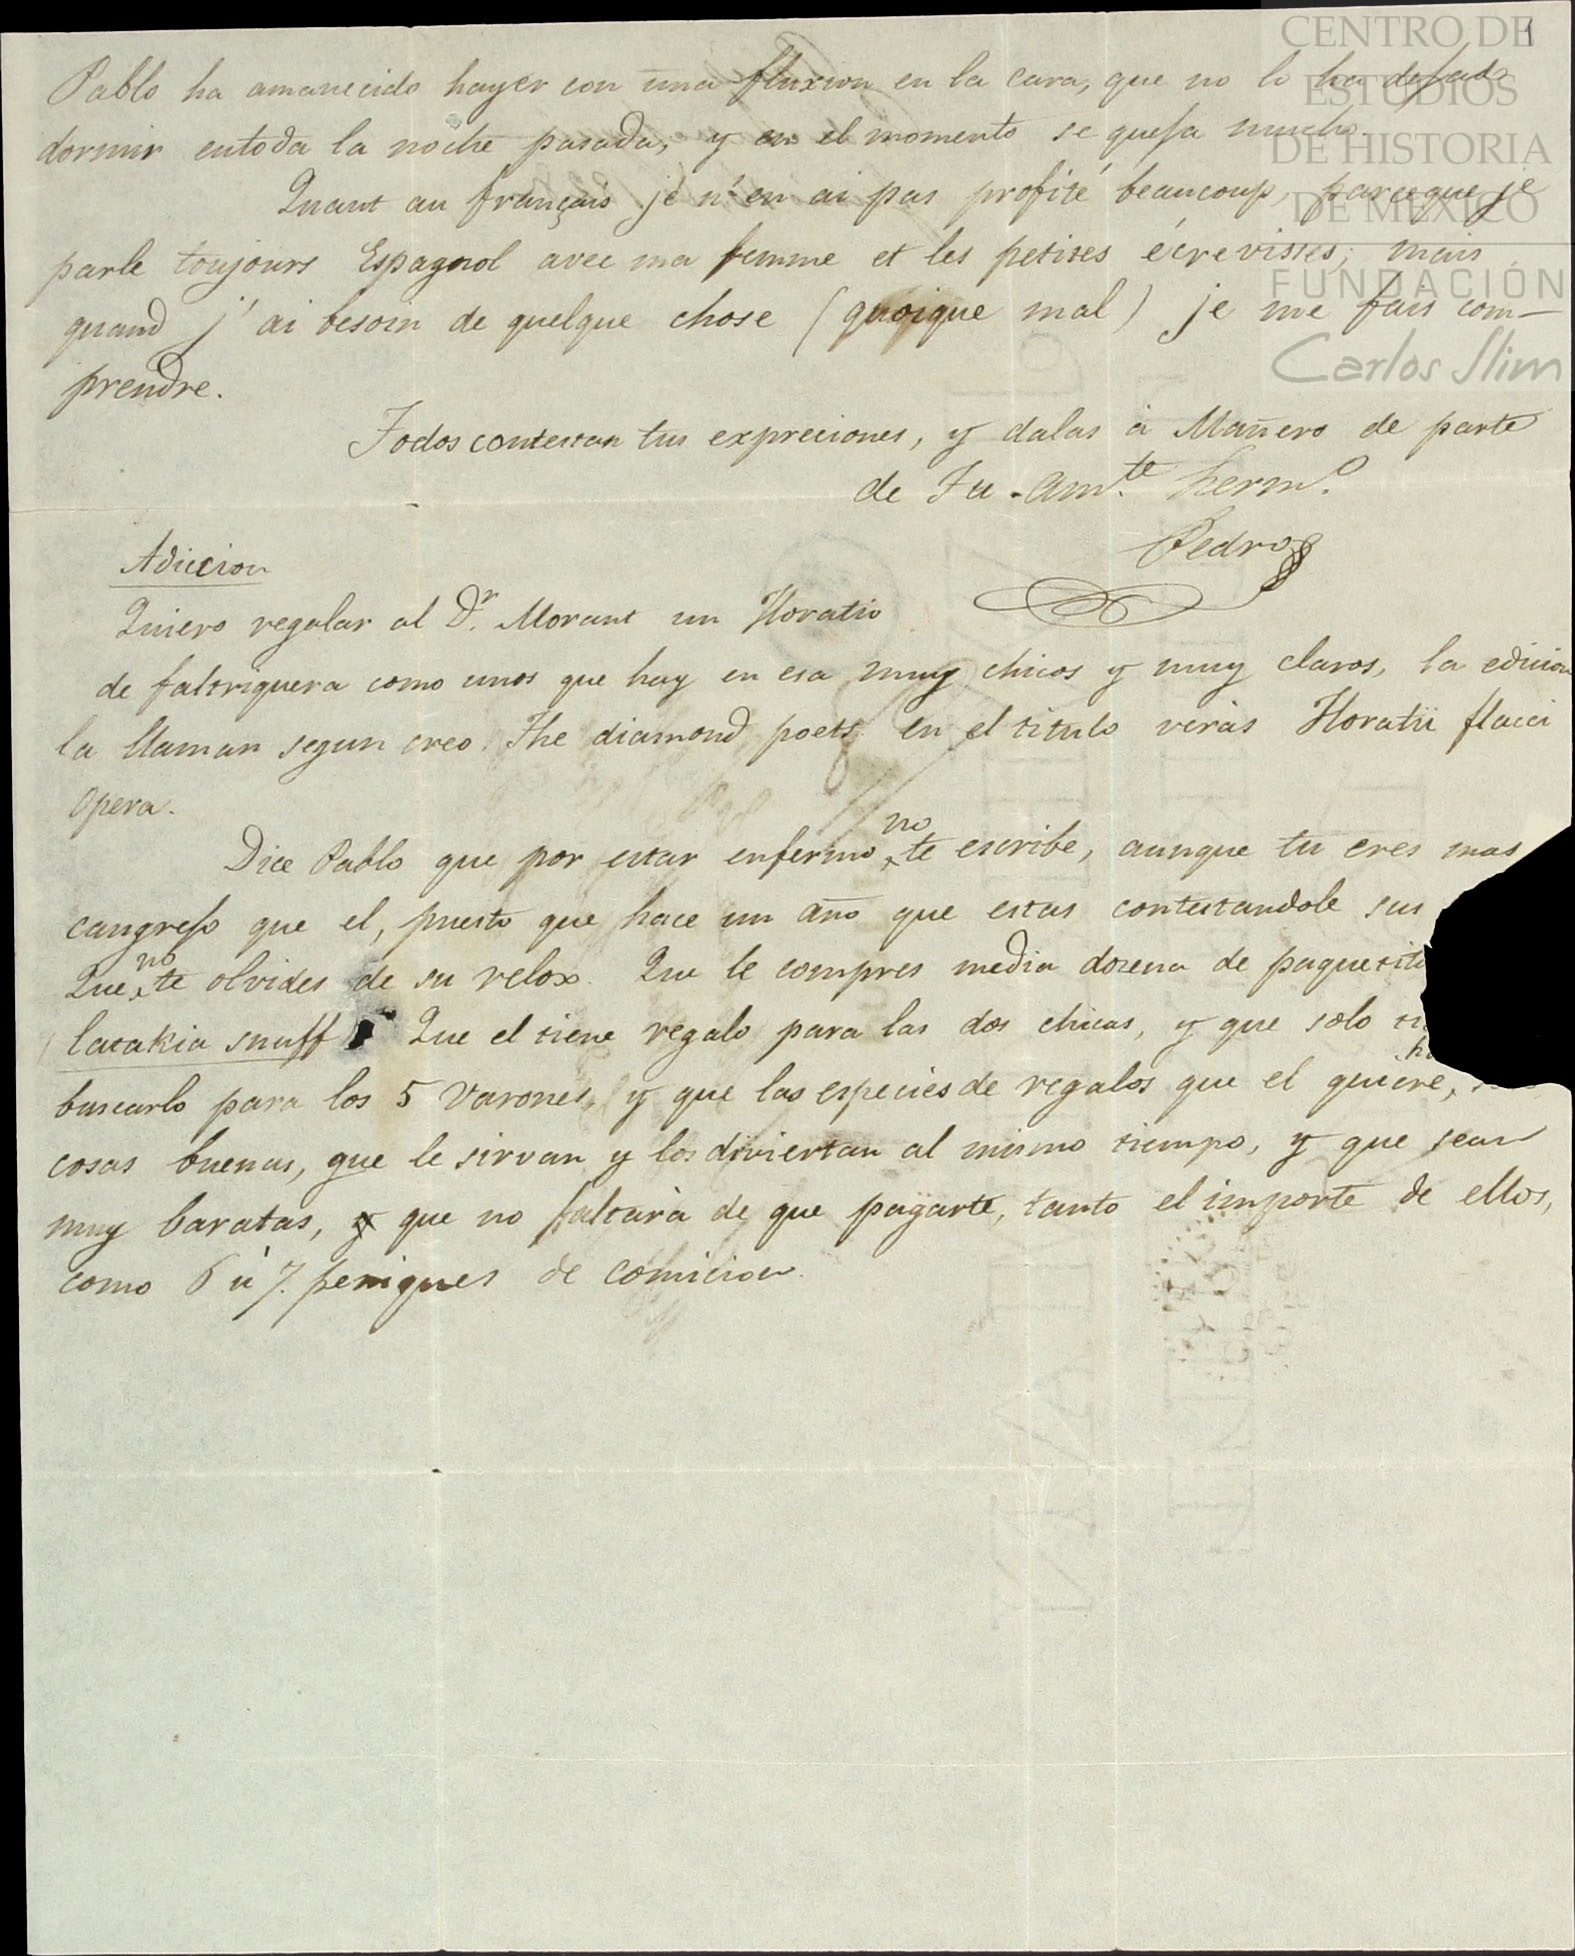 1
CENTRO DE
ESTUDIOS
DE HISTORIA
DE MEXICO
FUNDACIÓN
Carlos Slim
Pablo ha amanecido hayer con una fluxion en la cara, que no lo ha dejado
dormir entoda la noche pasada, y en el momento se queja mucho.
Quant au français je n'en ai pas profité beaucoup, parceque je
parle toujours Espagnol avec ma femme et les petites écrevisses; mais
quand j'ai besoin de quelque chose (quoique mal) je me fais com-
prendre.
Todos contestan tus expreciones, y dalas á Mañero de parte
de Tu Am.te herm.o
Pedro
Adiccion
Quiero regalar al Dr. Morant un Horatio
de faltriquera como unos que hay en esa muy chicos y muy claros, la edicion
la llaman segun creo. The diamond poets. en el titulo verás Horatii flacci
Opera.
Dice Pablo que por estar enfermo no te escribe, aunque tu eres mas
cangrejo que el, puesto que hace un año que estas contestandole sus
Que no te olvides de su relox. Que le compres media docena de paquetit
latakia snuff Que el tiene regalo para las dos chicas, y que solo
buscarlo para los 5 varones, y que las especies de regalos que el quiere,
cosas buenas, que le sirvan y los diviertan al mismo tiempo, y que sean
muy baratas, y que no faltará de que pagarte, tanto el importe de ellos,
como 6 ú 7. peniques de comicion.